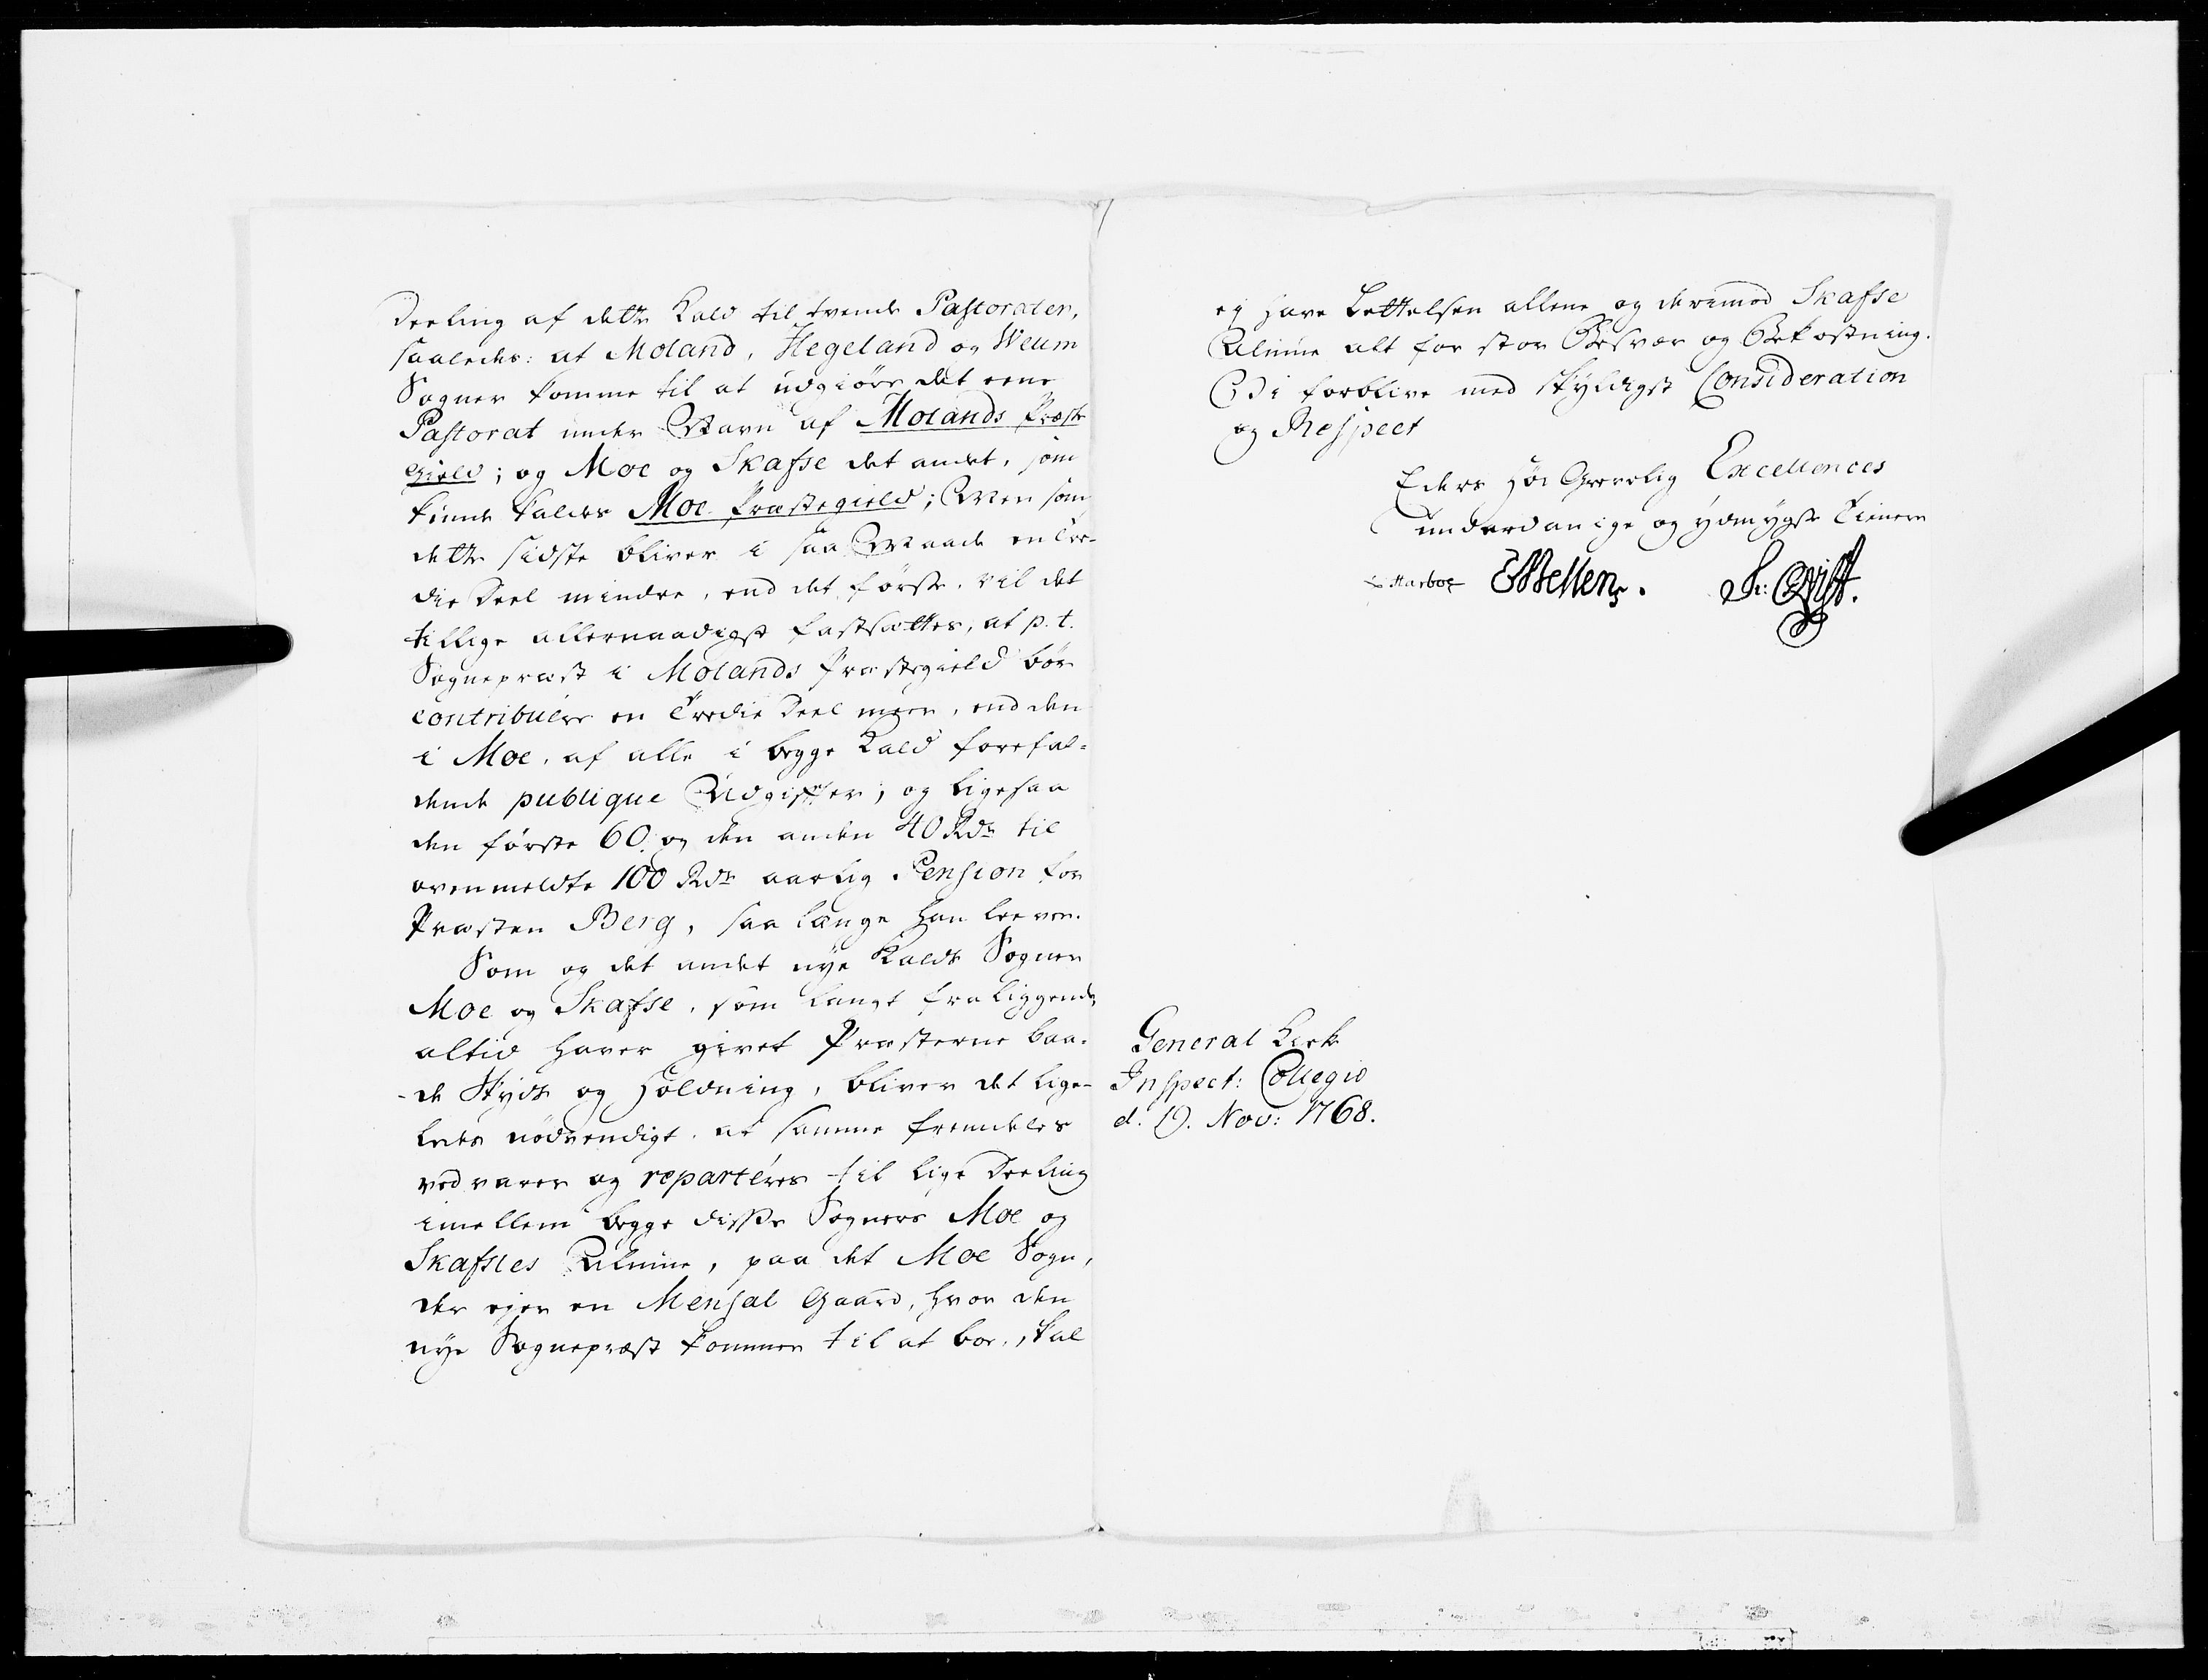 Deeling af dette Kald til tvende Pastorater,
saaledes: at Moland, Hegeland og Weum
Sogner komme til at udgiøre det eene
Pastorat under Navn af Molands Præste
Gield; og Moe og Skafse det andet, som
kunde kaldes Moe Præstegield; Men som
dette sidste bliver i saa Maade en Tre-
die Deel mindre, end det første, vil det
tillige allernaadigst fastsættes, at p. t.
Sognepræst i Molands Præstegield bør
contribuere en Tredie Deel meer, end den
i Moe, af alle i begge Kald forefal-
dende publique Udgifter; og ligesaa
den første 60. og den anden 40 Rdr til
ovenmeldte 100 Rdr aarlig Pension for
Præsten Berg, saa længe han lever.
Som og det andet nye Kalds Sogner
Moe og Skafse, som langt fraliggende,
altid haver givet Præsterne baa-
de Skyds og Holdning, bliver det lige-
ledes nødvendigt, at samme fremdeles
vedvarer og reparteres til lige Deeling
imellem begge disse Sogners Moe og
Skafses Almue, paa det Moe Sogn,
der ejer en Mensal Gaard, hvor den
nye Sognepræst kommer til at boe, skal
ej have Lettelsen allene og derimod Skafse
Almue alt for stor Besvær og Bekostning.
Vi forblive med skyldigst Consideration
og Respect
Eders Høi Grevelig Excellences
underdanige og ydmygste Tienere
Harboe
General Kirke
Inspect: Collegio
d. 19. Nov: 1768.